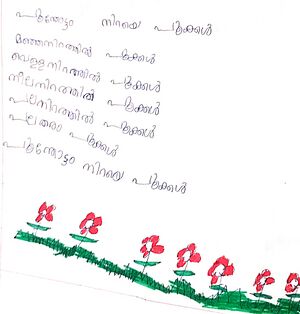 പൂന്തോട്ടം നിറയെ പൂക്കൾ
മഞ്ഞനിറത്തിൽ പൂക്കൾ
വെള്ളനിറത്തിൽ പൂക്കൾ
നീലനിറത്തിൽ പൂക്കൾ
പലനിറത്തിൽ പൂക്കൾ
പലതരം പൂക്കൾ
പൂന്തോട്ടം നിറയെ പൂക്കൾ